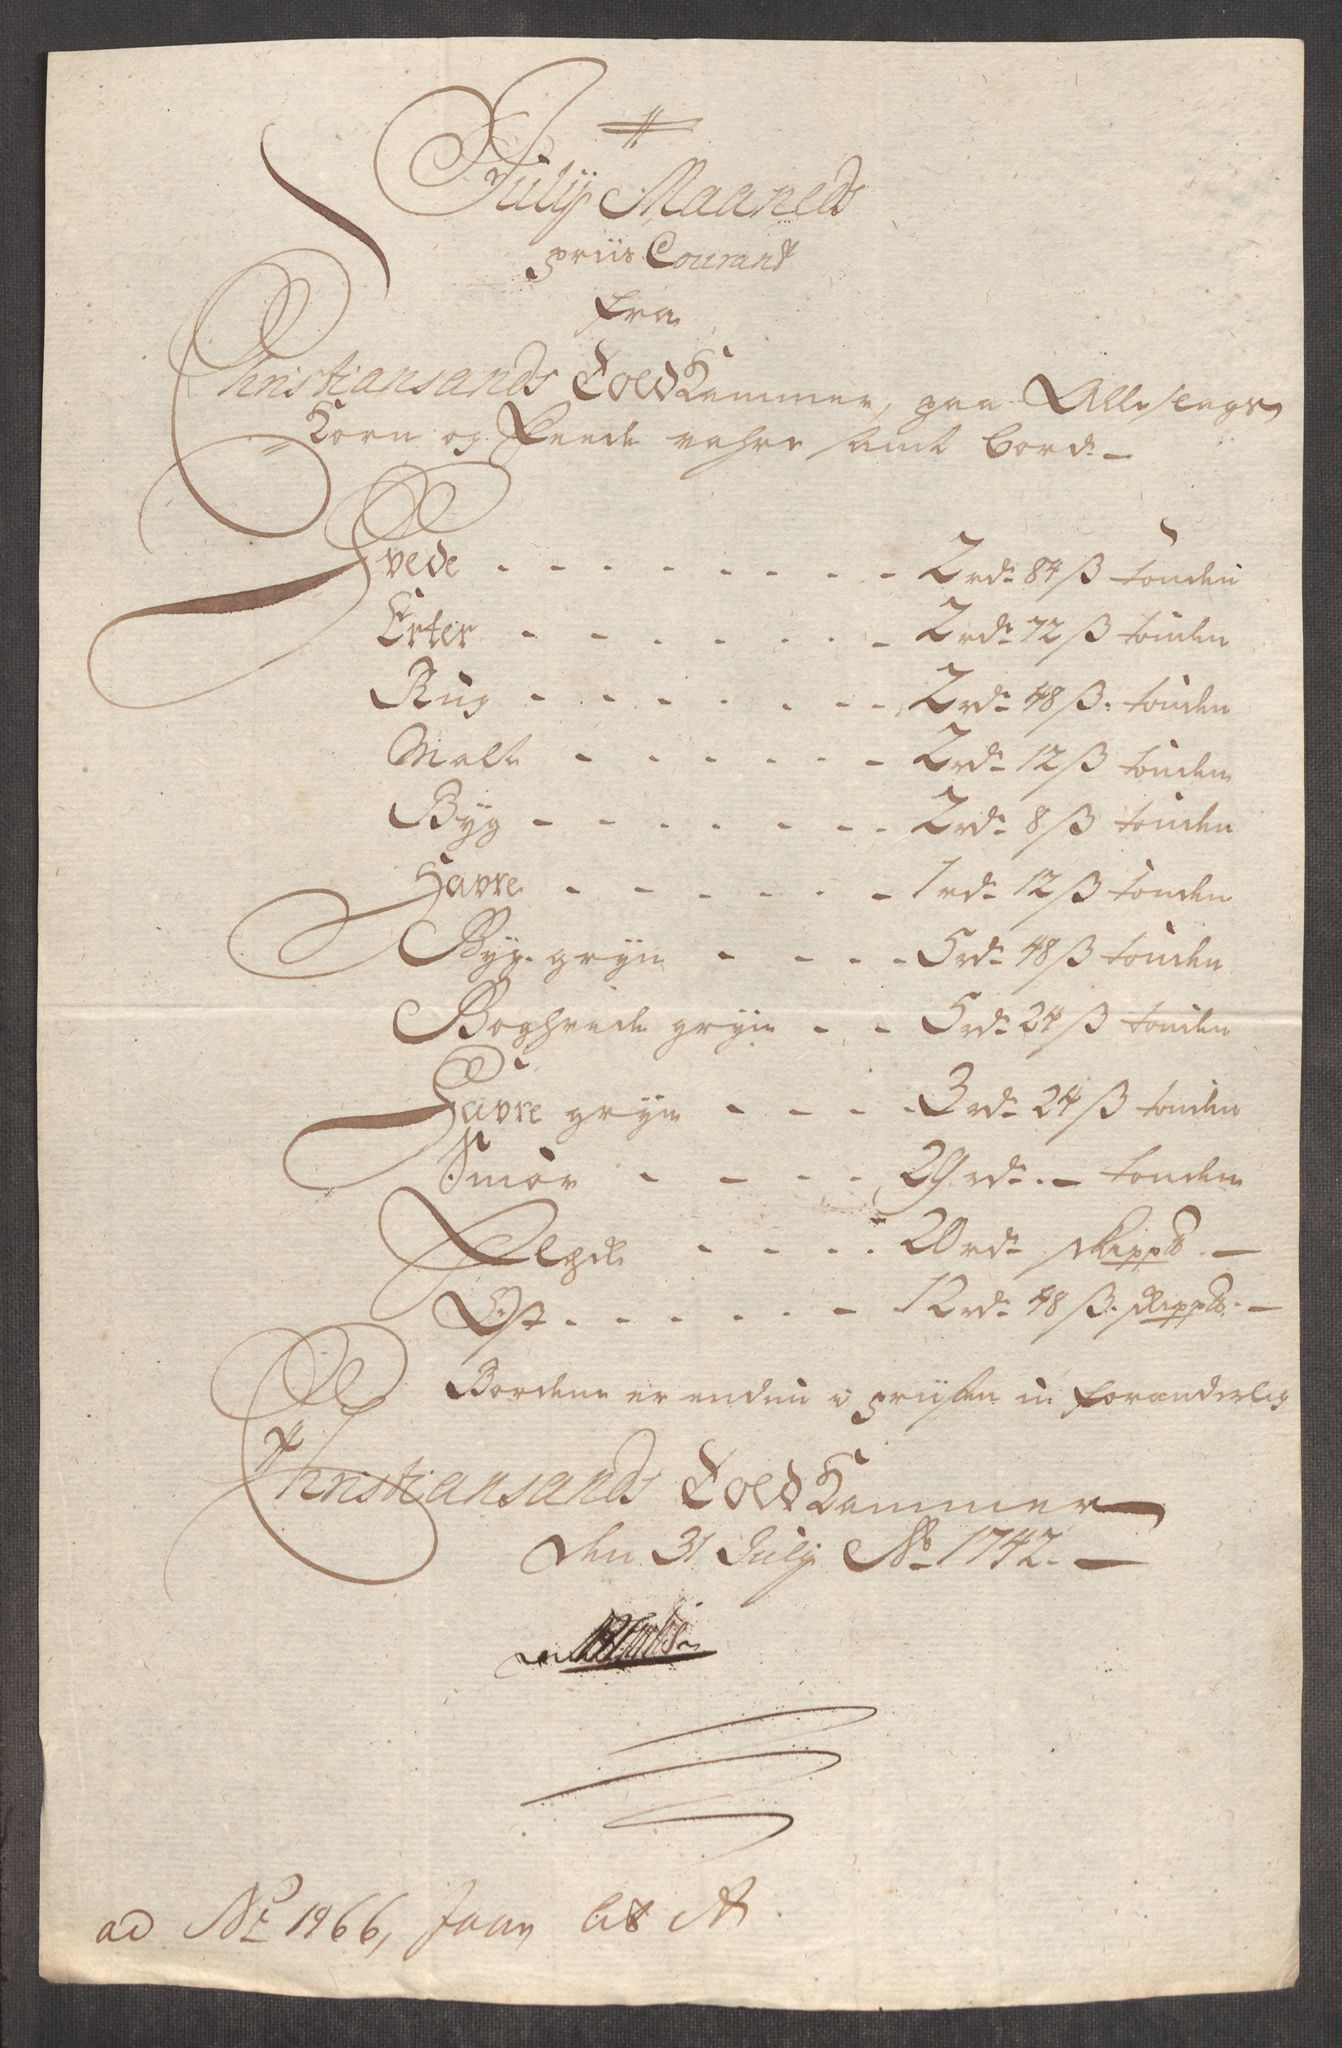 July Maaneds
priis Courant
fra
Christiansands Told Kammer, paa Alle slags
Korn og Feede vahre samt bord.
Hvede 2 rd 84 ß tønden
Erter 2 rd 72 ß tønden
Rug 2 rd 48 ß tønden
Malt 2 rd 12 ß tønden
Byg 2 rd 8 ß tønden
Havre 1 rd 12 ß tønden
Byg gryn 5 rd 48 ß tønden
Boghvede gryn 5 rd 24 ß tønden
Havre gryn 3 rd 24 ß tønden
Smør 29 rd tønden
Flesk 20 rd skipp℔
Ost 12 rd 48 ß skipp℔
Bordene er enden i priisen u foranderlig
Christiansands Told Kammer
den 31 July Ao 1742.
ad No 1966, Faay lit A